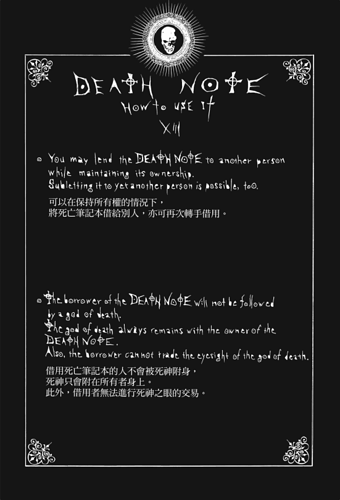 DEATH NOTE
HOW TO USE IT
XIII
You may lend the DEATH NOTE to another person
while maintaining its ownership.
Subletting it to yet another person is possible, too.
可以在保持所有權的情況下，
將死亡筆記本借給別人，亦可再次轉手借用。
The borrower of the DEATH NOTE will not be followed
by a god of death.
The god of death always remains with the owner of the
DEATH NOTE.
Also, the borrower cannot trade the eyesight of the god of death.
借用死亡筆記本的人不會被死神附身，
死神只會附在所有者身上。
此外，借用者無法進行死神之眼的交易。